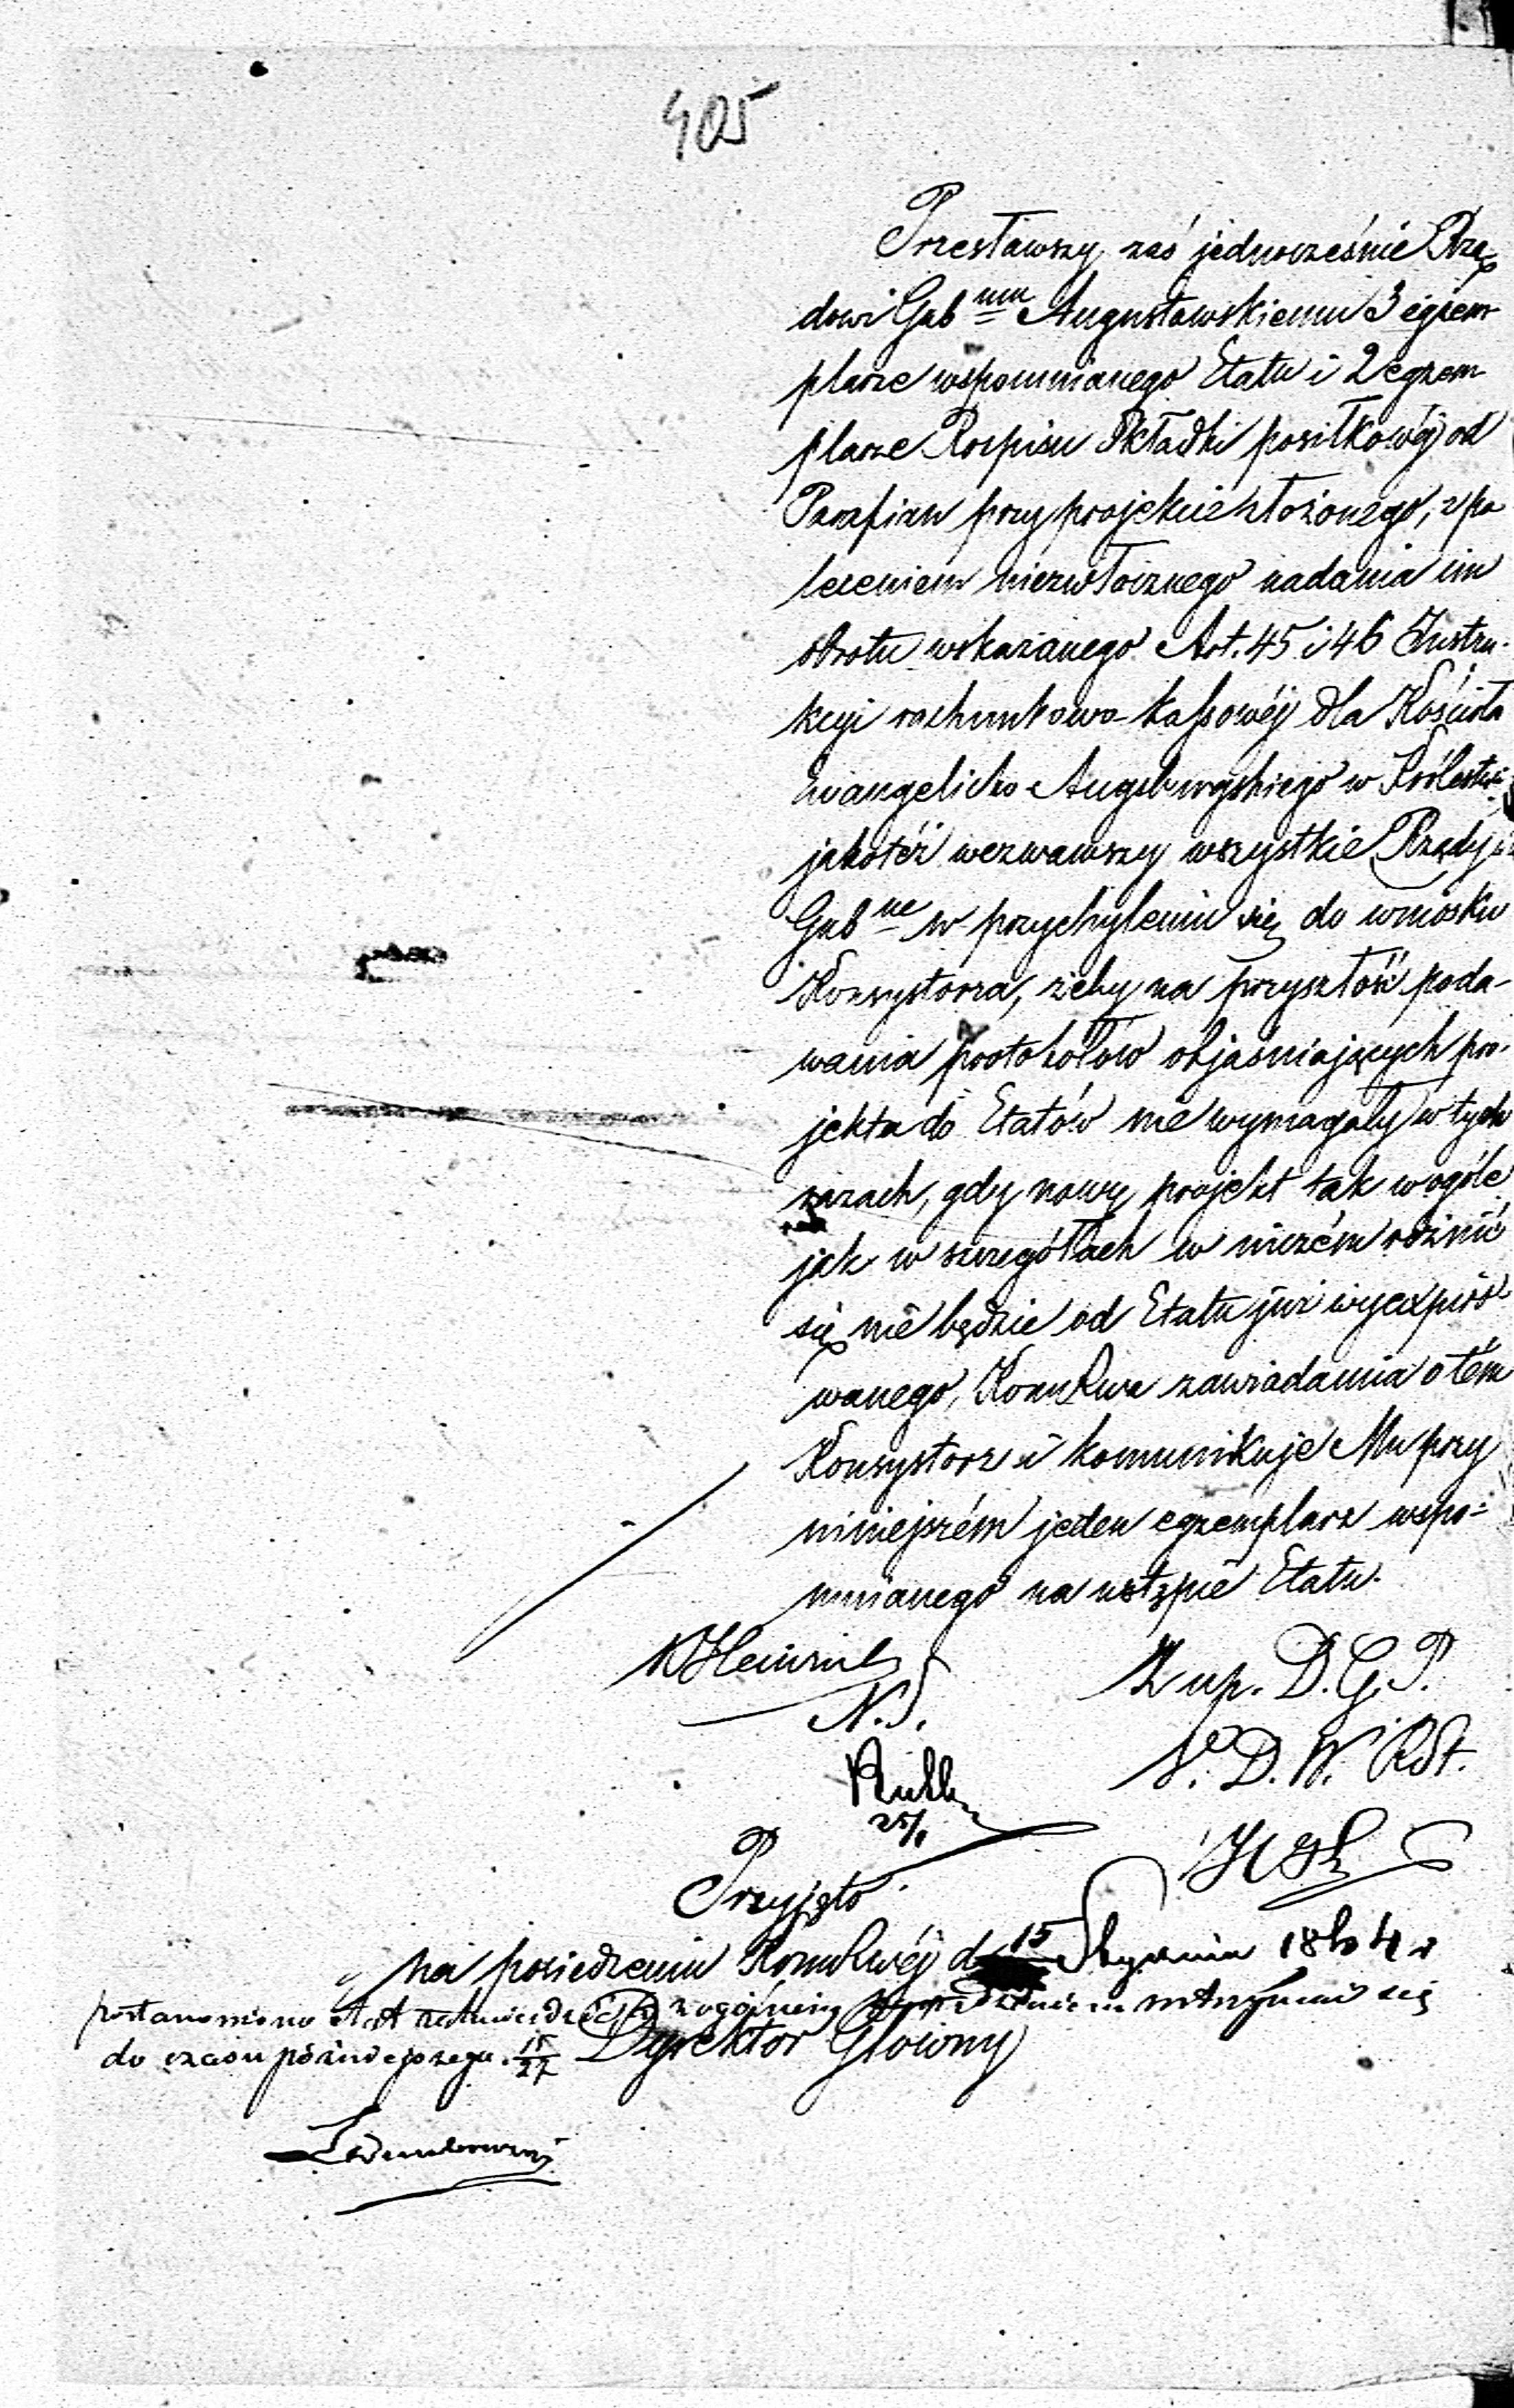 405
Przesławszy zaś jednocześnie Rzą
dowi Gub nmu Augustowskiemu 3 egzem-
plarze wspomnianego Etatu i 2 egzem
plarze Rozpisu Składki posiłkowéj od
Parafian przy projekcie złożonego, z po
leceniem niezwłocznego nadania im
obrotu wskazanego Art. 45 i 46 Instru-
kcyi rachunkowo-kassowéj dla Kościoła
Ewangelicko-Augsburgskiego w Królestwie
jakotéż wezwawszy wszystkie Rządy
Gub ne w przychyleniu się do wniosku
Konsystorza, żeby na przyszłość poda-
wania protokołów objaśniających pro-
jekta do Etatów nie wymagały w tych
razach, gdy nowy projekt tak wogóle
jak w szczegółach w niczém różnić
się nie będzie od Etatu już wyexpiro-
wanego, Kom Rwa zawiadamia o tém
Konsystorz i komunikuje Mu przy
niniejszém jeden egzemplarz wspo-
mnianego na wstępie Etatu.
Z up. D. G. P.
N. S.
D. W.
25/1
Przyjęto
na posiedzeniu Kom Rwéj d 15 Stycznia 1864 r
postanowiono wstrzymać się
do czasu późniejszego. 15/27 Dyrektor Główny